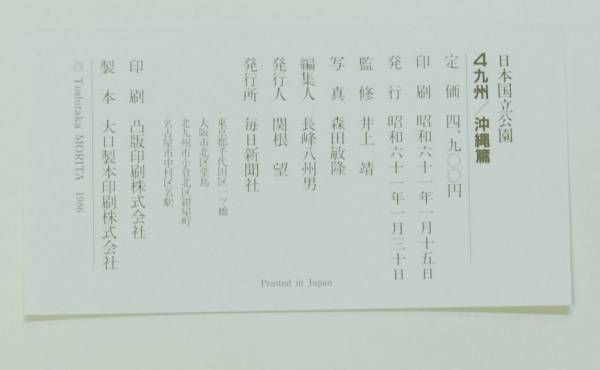 日本国立公園
4九州／沖縄篇
定価 四、九〇〇円
印刷 昭和六十一年一月十五日
発行 昭和六十一年一月三十日
監修 井上靖
写真 森田敏隆
編集人 長峰八州男
発行人 関根望
発行所 毎日新聞社
東京都千代田区一ツ橋
大阪市北区堂島
北九州市小倉北区紺屋町
名古屋市中村区名駅
印刷 凸版印刷株式会社
製本 大口製本印刷株式会社
© Toshitaka MORITA 1986
Printed in Japan